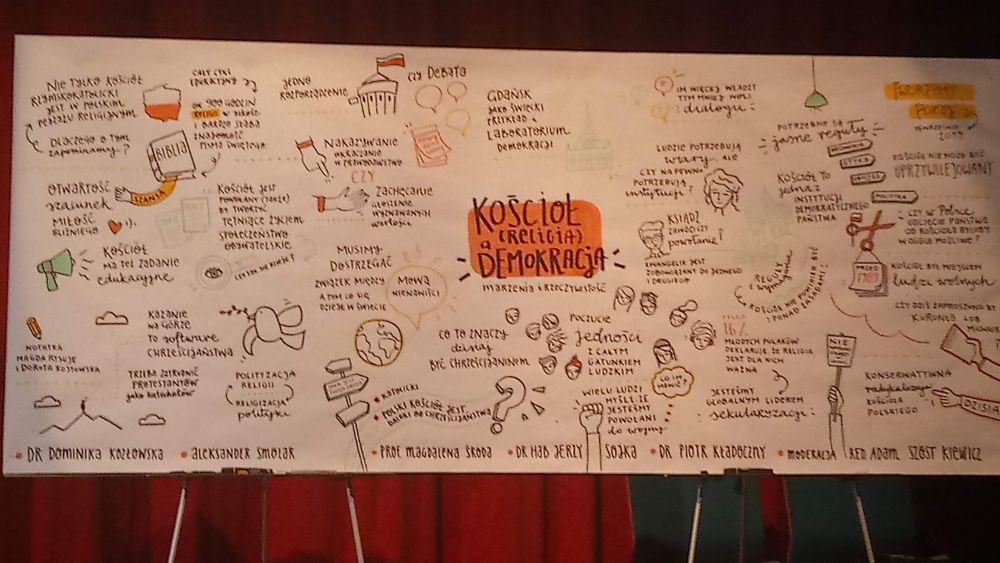 NIE TYLKO KOŚCIÓŁ
RZYMSKOKATOLICKI
JEST W POLSKIM
PEJZAŻU RELIGIJNYM
DLACZEGO O TYM
ZAPOMINAMY?
CAŁY CYKL
EDUKACYJNY
OK 900 GODZIN
RELIGII W SZKOLE
I BARDZO SŁABA
ZNAJOMOŚĆ
PISMA ŚWIĘTEGO
BIBLIA
SZANSA
OTWARTOŚĆ
SZACUNEK
MIŁOŚĆ
BLIŹNIEGO
KOŚCIÓŁ
MA TEŻ ZADANIE
edukacyjne
KOŚCIÓŁ JEST
POWOŁANY (TAKŻE)
BY TWORZYĆ
TĘTNIĄCE ŻYCIEM
SPOŁECZEŃSTWO
OBYWATELSKIE
NOTATKA
MAGDA RYSUJE
I DOROTA KOSTOWSKA
KAZANIE
NA GÓRZE
TO software
CHRZEŚCIJAŃSTWA
TRZEBA ZATRUDNIĆ
PROTESTANTÓW
jako katechetów
POLITYZACJA
RELIGII
RELIGIZACJA
polityki
JEDNO
ROZPORZĄDZENIE
CZY DEBATA
NAKAZYWANIE
WKRACZANIE
W PRAWODAWSTWO
CZY
ZACHĘCANIE
GŁOSZENIE
WYZNAWANYCH
WARTOŚCI
MUSIMY
DOSTRZEGAĆ
ZWIĄZEK MIĘDZY
A TYM CO SIĘ
DZIEJE W ŚWIECIE
MOWĄ
NIENAWIŚCI
KATOLICKI
POLSKI KOŚCIÓŁ JEST
DALEKI OD CHRZEŚCIJAŃSTWA
GDAŃSK
JAKO ŚWIECKI
PRZYKŁAD
LABORATORIUM
DEMOKRACJI
KOŚCIÓŁ
(RELIGIA)
a
DEMOKRACJA
marzenia i rzeczywistość
CO TO ZNACZY
dzisiaj
BYĆ CHRZEŚCIJANINEM
POCZUCIE
jedności
Z CAŁYM
GATUNKIEM
LUDZKIM
WIELU LUDZI
MYŚLI, ŻE
JESTEŚMY
POWOŁANI
do wojny
IM WIĘCEJ WŁADZY
TYM MNIEJ WOLI
dialogu
LUDZIE POTRZEBUJĄ
wiary, ale
CZY NA PEWNO
POTRZEBUJĄ
instytucji?
KSIĄDZ
ZAWÓD CZY
powołanie?
EWANGELIK JEST
ZOBOWIĄZANY DO JEDNEGO
I DRUGIEGO
TYLKO
16%
MŁODYCH POLAKÓW
DEKLARUJE, ŻE RELIGIA
JEST DLA NICH
WAŻNA
JESTEŚMY
GLOBALNYM LIDEREM
sekularyzacji
POTRZEBNE SĄ
jasne reguły
KOŚCIÓŁ TO
jedna z
INSTYTUCJI
DEMOKRATYCZNEGO
PAŃSTWA
REGUŁY
i wymagania
KOŚCIÓŁ NIE POWINIEN BYĆ
PONAD ZASADAMI
EKONOMIA
ETYKA
POLITYKA
TWORZYMY
POKÓJ
2019
KOŚCIÓŁ NIE MOŻE BYĆ
UPRZYWILEJOWANY
CZY W POLSCE
ODCIĘCIE PAŃSTWA
OD KOŚCIOŁA BYŁOBY
W OGÓLE MOŻLIWE?
PRZED
1989
KOŚCIÓŁ BYŁ MIEJSCEM
ludzi wolnych
CZY DZIŚ ZAPROSIŁBY
KURONIA LUB
NIE
KONSERWATYWNA
radykalizacja
KOŚCIOŁA
POLSKIEGO
DZISIAJ
DR DOMINIKA KOZŁOWSKA • ALEKSANDER SMOLAR • PROF. MAGDALENA ŚRODA • DR HAB JERZY SOJKA • DR PIOTR KŁADOCZNY • MODERACJA RED ADAM SZOSTKIEWICZ